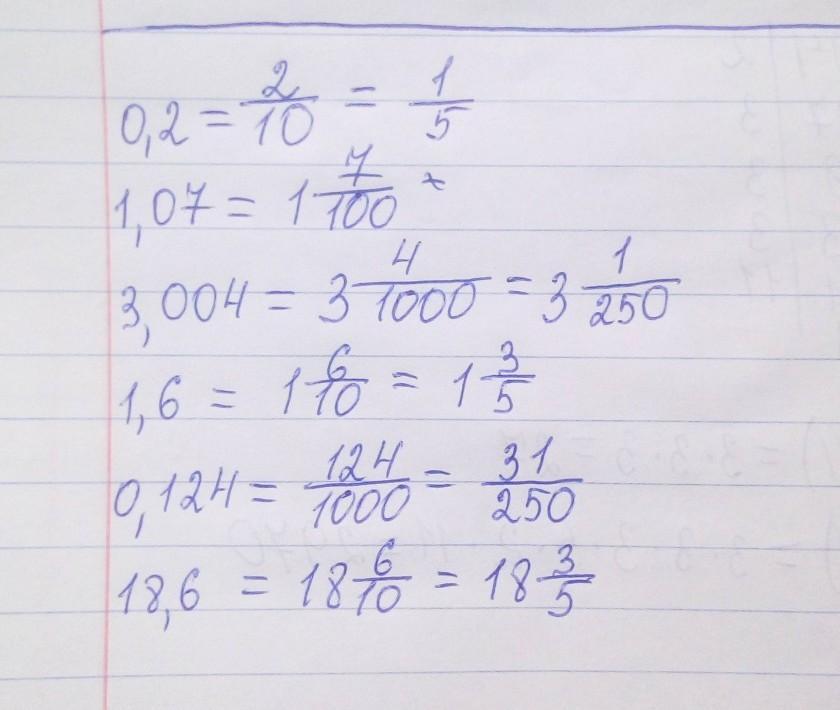 0,2 = 2/10 = 1/5
1,07 = 1 7/100
3,004 = 3 4/1000 = 3 1/250
1,6 = 1 6/10 = 1 3/5
0,124 = 124/1000 = 31/250
18,6 = 18 6/10 = 18 3/5